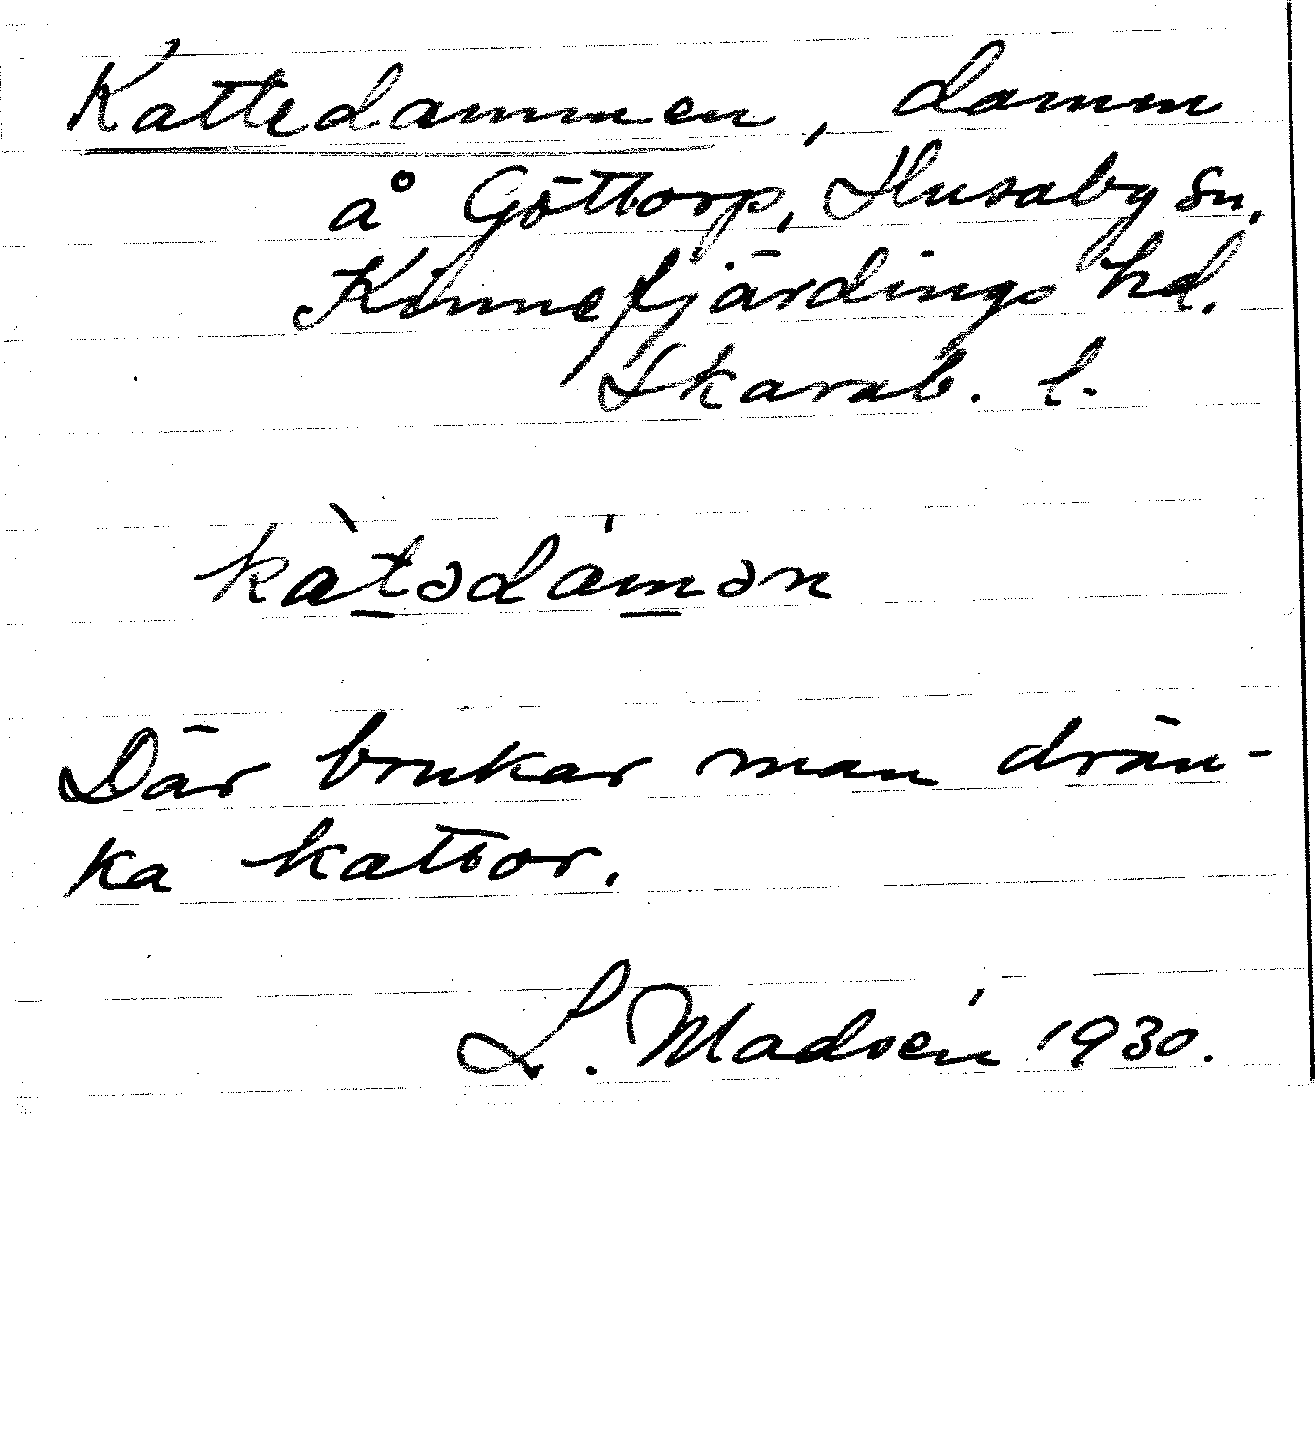 Kattedammen, damm
å Göttorp, Husaby sn,
Kinnefjärdings hd.
Skarab. l.
kàtədámən
Där brukar man drän-
ka kattor.
L. Madsén 1930.